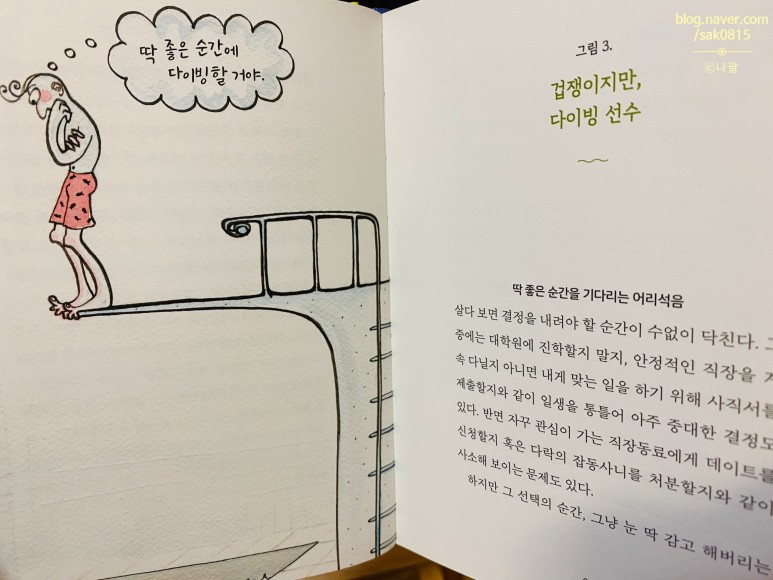 딱 좋은 순간에
다이빙할 거야.
blog.naver.com
/sak0815
ⓒ나팔
그림 3.
겁쟁이지만,
다이빙 선수
딱 좋은 순간을 기다리는 어리석음
살다 보면 결정을 내려야 할 순간이 수없이 닥친다. 그
중에는 대학원에 진학할지 말지, 안정적인 직장을
속 다닐지 아니면 내게 맞는 일을 하기 위해 사직서를
제출할지와 같이 일생을 통틀어 아주 중대한 결정도
있다. 반면 자꾸 관심이 가는 직장동료에게 데이트를
신청할지 혹은 다락의 잡동사니를 처분할지와 같이
사소해 보이는 문제도 있다.
하지만 그 선택의 순간, 그냥 눈 딱 감고 해버리는